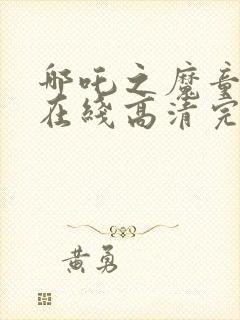 哪吒之魔童
在綫高清完
黃勇